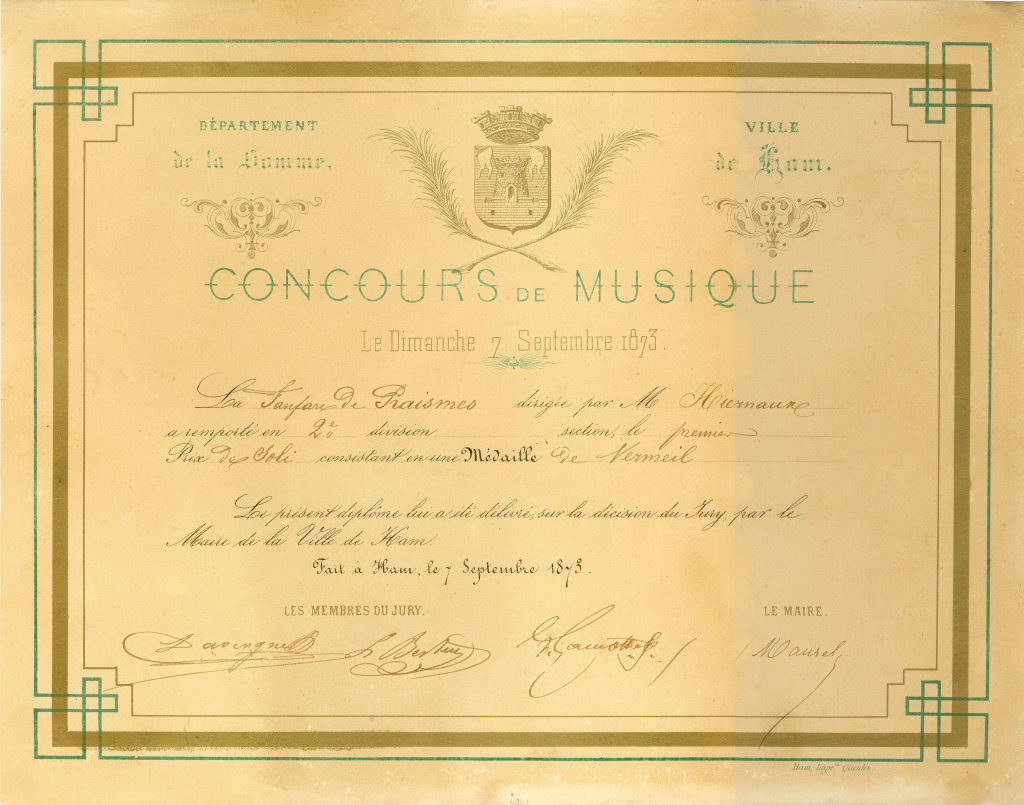 DÉPARTEMENT
de la Somme.
VILLE
de Ham.
CONCOURS DE MUSIQUE
Le Dimanche 7 Septembre 1873.
La Fanfare de Raismes dirigée par M Hiernaux
a remporté en 2e division section, le premier
Prix de Soli consistant en une Médaille de Vermeil
Le présent diplôme lui a été délivré, sur la décision du Jury, par le
Maire de la Ville de Ham.
Fait à Ham, le 7 Septembre 1873.
LES MEMBRES DU JURY.
LE MAIRE.
Maurel
Ham, Imprie Quentin.